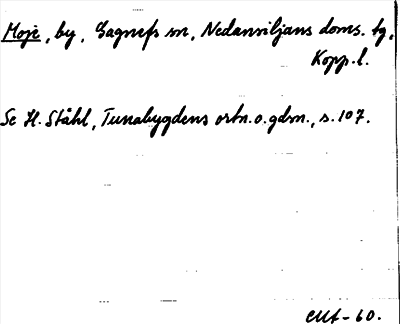 Moje, by, Gagnefs sn, Nedansiljans doms. tg,
Kopp.l.
Se H. Ståhl, Tunabygdens ortn. o. gdsn., s. 107.
-60.